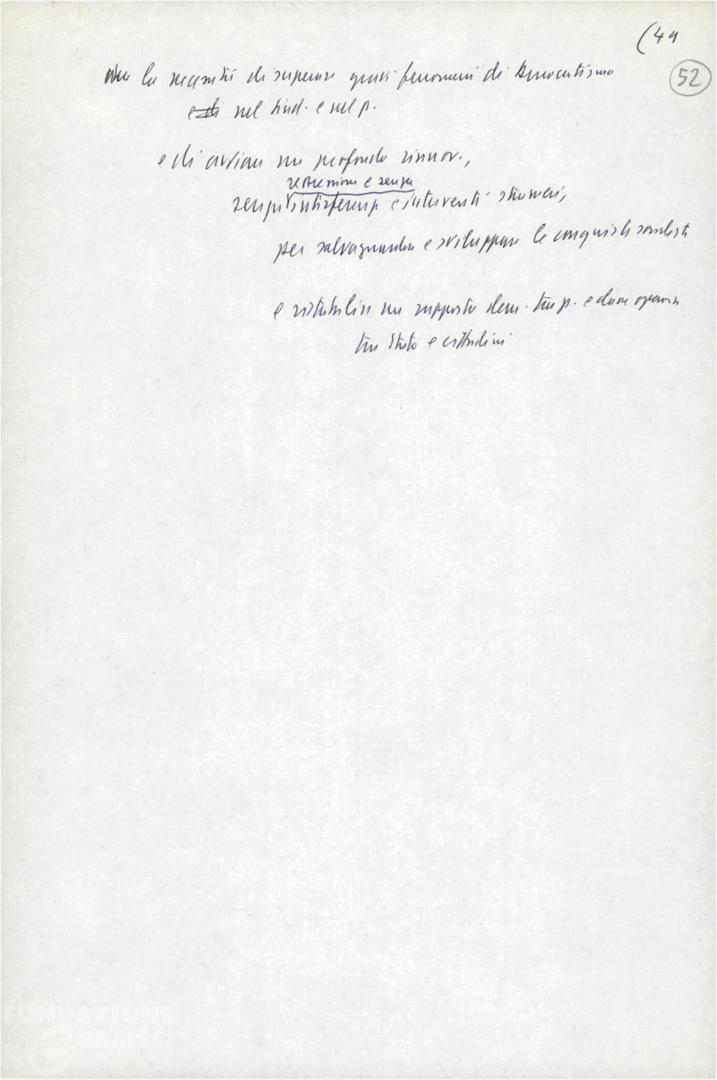 (49
52
la necessità di superare gravi fenomeni di burocratismo
nel sind. e nel p.
e di avviare un profondo rinnov.,
restrizioni e senza
senza interferenze e interventi stranieri,
per salvaguardare e sviluppare le conquiste socialiste
e ristabilire un rapporto dem. tra p. e classe operaia
tra Stato e cittadini
FONDAZIONE
GRAMSCI